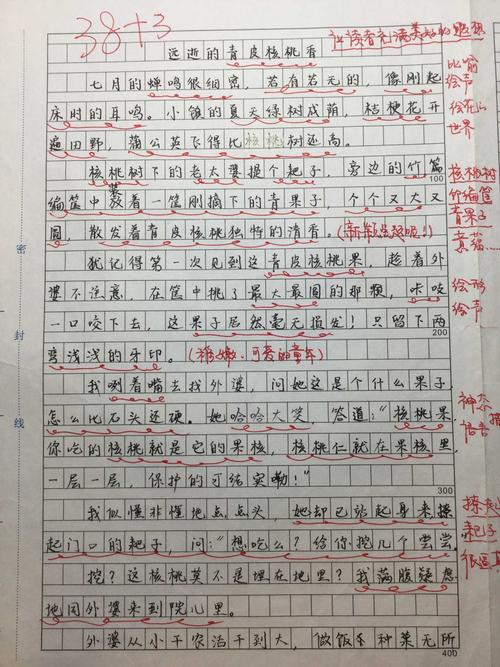 38+3
让读者充满美好的遐想
远逝的青皮核桃香
七月的蝉鸣很细密,若有若无的,像刚起
比喻
绘声
床时的耳鸣。小镇的夏天绿树成荫,桔梗花开
遍田野,蒲公英飞得比核桃树还高。
世界
核桃树下的老太婆摸个耙子,旁边的竹篇
核桃树
100
编筐中装着一筐刚摘下的青果子,个个又大又
竹编筐
青果子
圆,散发着青皮核桃独特的清香。
犹记得第一次见到这青皮核桃果,趁着外
婆不注意,在筐中挑了最大最圆的那颗,咔吱
绘形
绘声
一口咬下去,这果子居然毫无损发!只留下两
200
弯浅浅的牙印。(稚嫩、可喜的童年)
我咧着嘴去找外婆,问她这是个什么果子,
怎么比石头还硬。她哈哈大笑 答道:“核桃果,
神态
你吃的核桃就是它的果核,核桃仁就在果核里,
一层一层,保护的可结实嘞!”
300
我似懂非懂地点点头,她却已站起身来操
起门口的耙子,问:“想吃么?给你挖几个尝尝
耙子
挖?这核桃莫不是埋在地里?我满腹疑惑
地同外婆来到院儿里。
外婆从小干农活干到大,做饭种菜无所
400
密
封
线